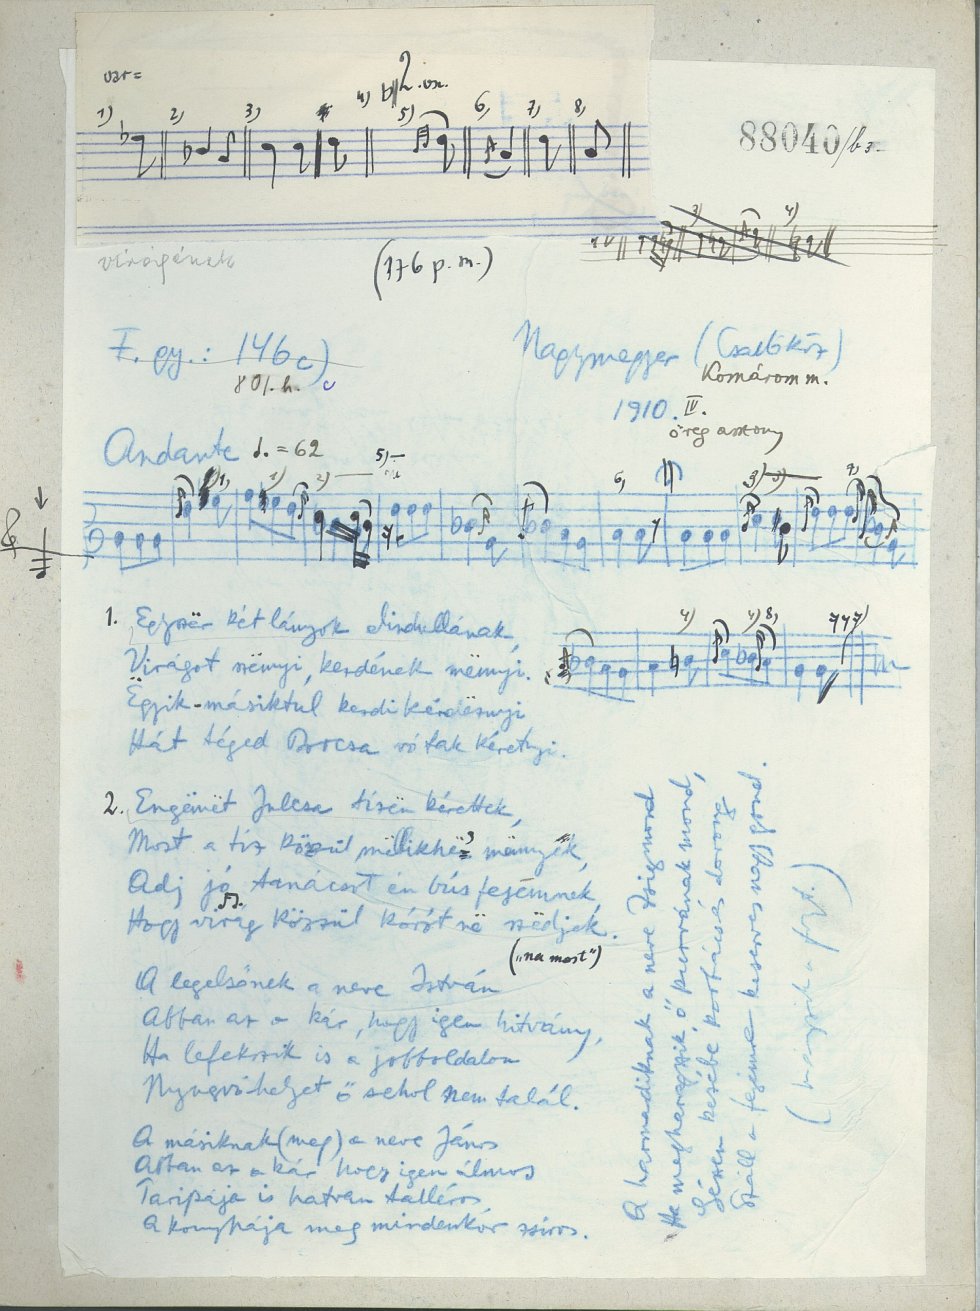 var=
1) 2) 3) 4) 2. vsz. 5) 6, 7, 8,
88040/
3) 4)
virágének
(176 p. m.)
F. gy.: 146c)
80/. h.
Nagymegyer (Csallóköz)
Komárom m.
1910. IV.
öreg asszony
Andante ♩. = 62
1) 1) 2) 5)
6, 3) 7,
4) 4) 8,
1. Egyszër két lányok elindullának,
Virágot szënnyi, kezdének mënnyi.
Ëgyik-másiktul kezdi kérdëznyi
Hát téged Borcsa vótak kéretnyi.
2. Engëmët Julcsa tízën kérettek,
Most a tíz közül mëlikhë mënnyek,
Adj jó tanácsot én bús fejemnek,
Hogy virág közzül kórót në szëdjek.
("na most")
A legelsőnek a neve István
Abban az a kár, hogy igen hitvány,
Ha lefekszik is a jobboldalon
Nyugvóhelyet ő sehol nem talál.
A másiknak (meg) a neve János
Abban az a kár hogy igen álmos
Taripája is hatvan talléros
A konyhája meg mindenkor zsíros.
A harmadiknak a neve Zsigmond
Ha megharagszik, ő kurvának mond,
kezébe korbácsos dorong
Száll a fejemre keserves nagy gond.